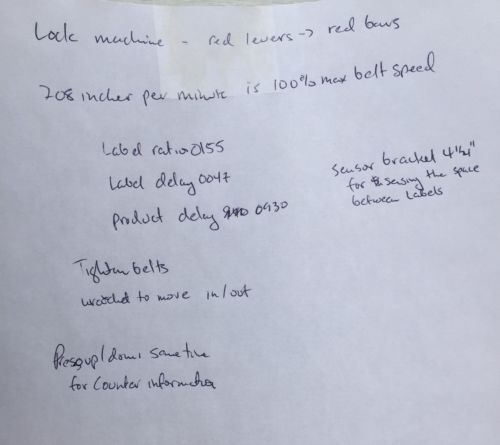 Lock machine - red levers -> red bars
708 inches per minute is 100% max belt speed
Label ratio 0155
Label delay 0047
product delay 0430
Sensor bracket 4 1/2"
for sensing the space
between Labels
Tighten belts
to move in/out
Press up/down same time
for Counter information